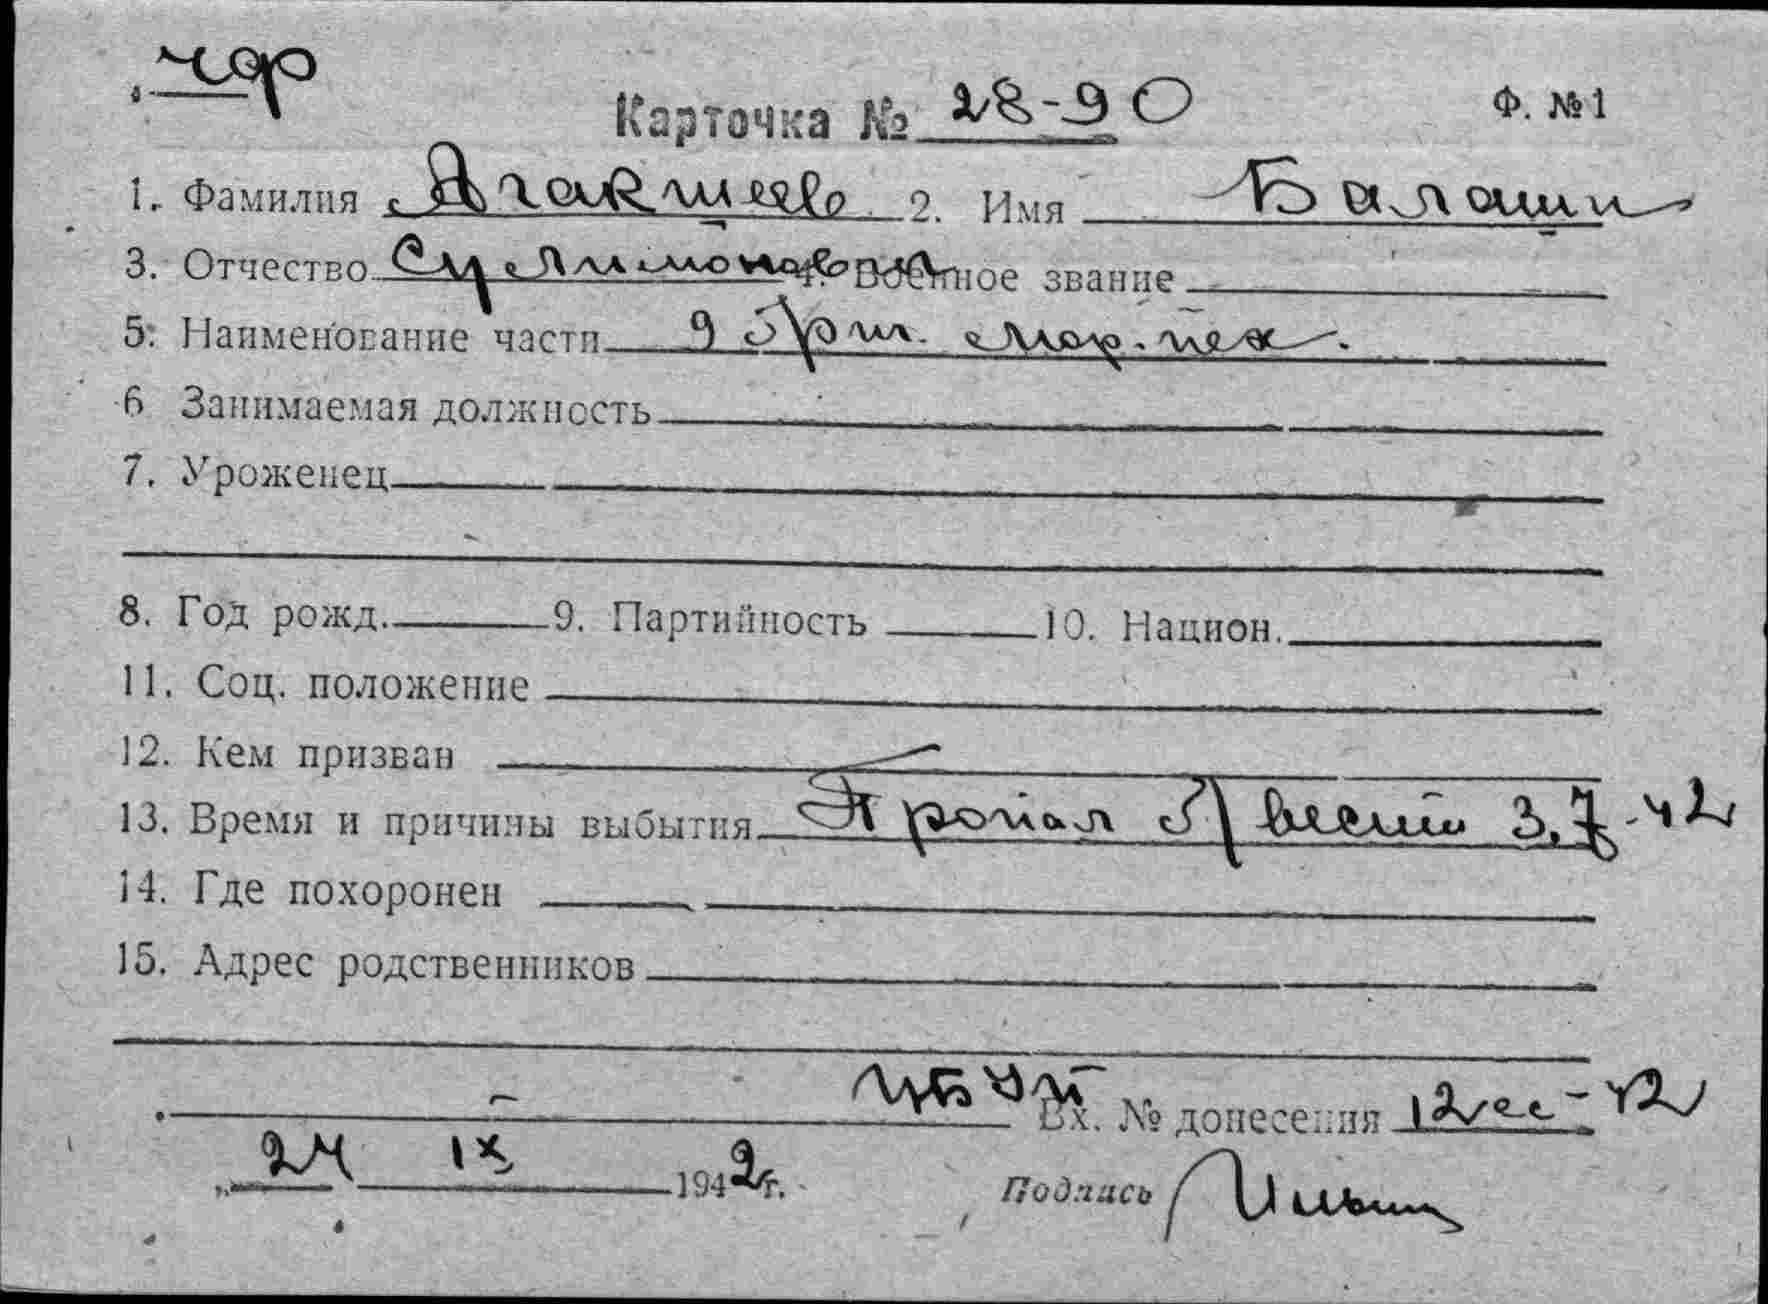 чф
Карточка № 28-90 Ф. №1
1. Фамилия Агакишев 2. Имя Балаши
3. Отчество Сулимонович 4. Военное звание
5. Наименование части 9 бриг. мор. пех.
6 Занимаемая должность
7. Уроженец
8. Год рожд. 9. Партийность 10. Национ.
11. Соц. положение
12. Кем призван
13. Время и причины выбытия Пропал б/вести 3.7.42
14. Где похоронен
15. Адрес родственников
Вх. № донесения 12сс-42
„24 IX 1942г. Подпись Ильин